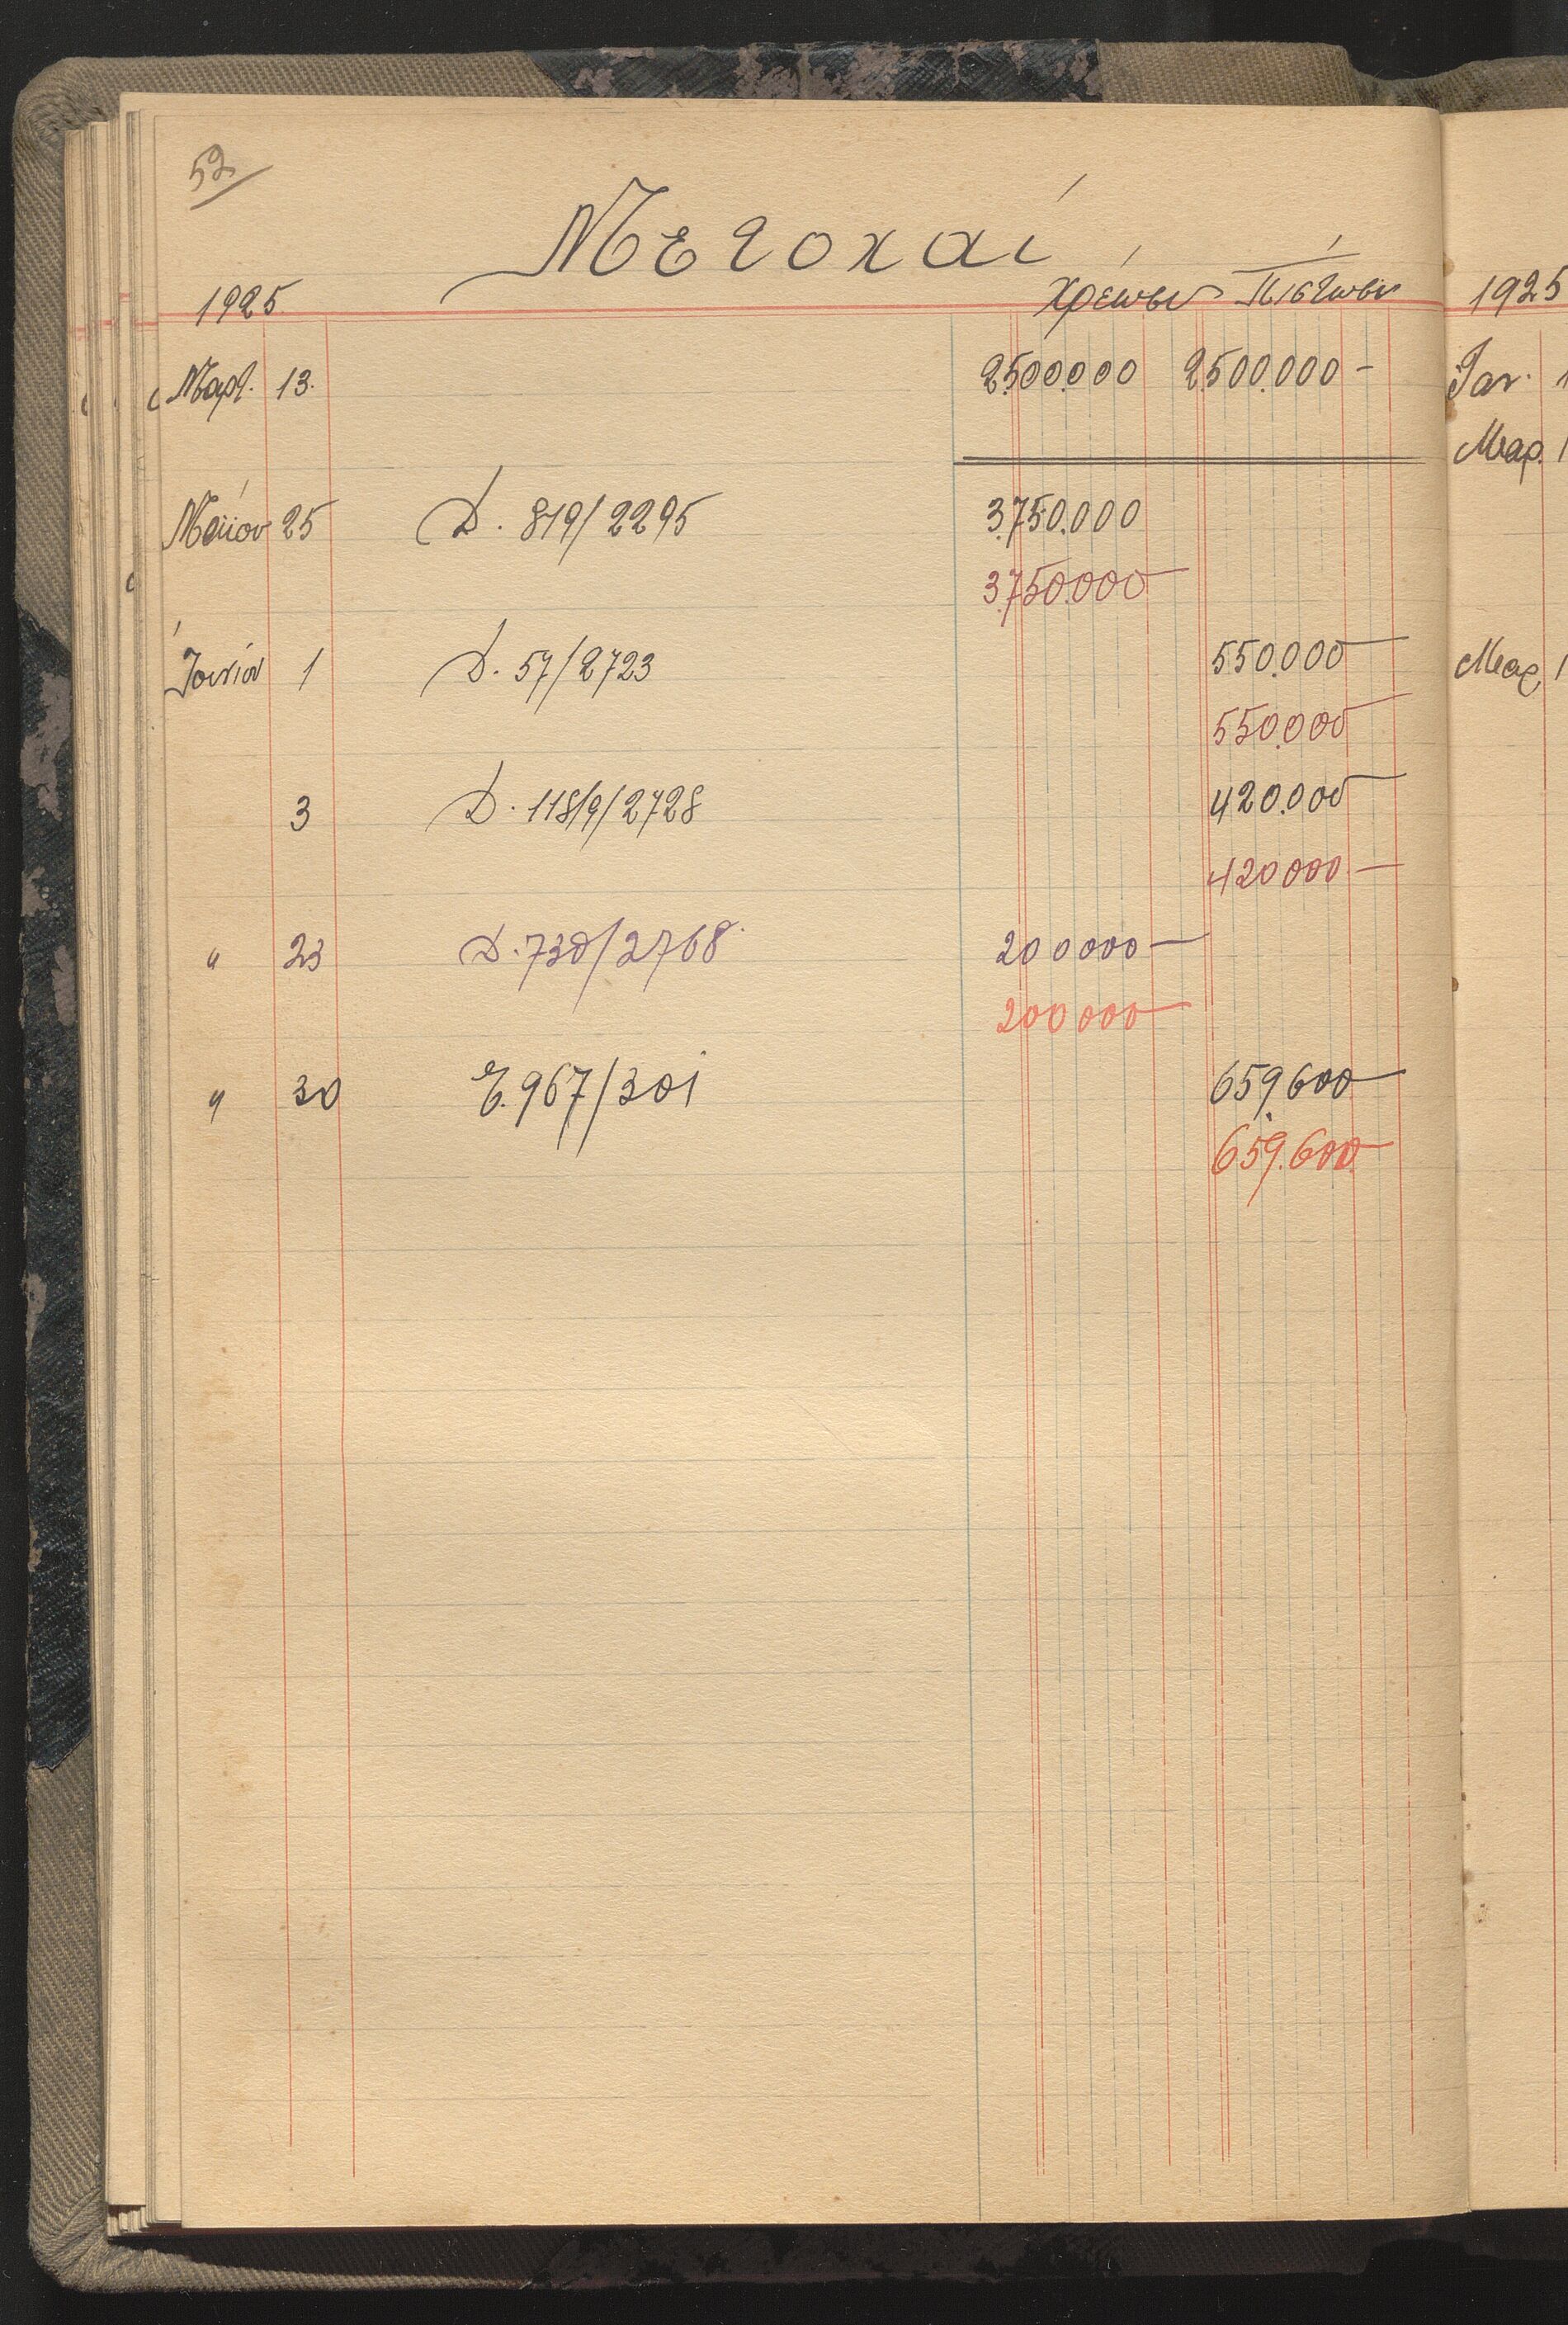 52
Μετοχαί
1925 Χρέωσις Πίστωσις
Μαρτ. 13. 2.500.000 2.500.000 -
Μαΐου 25 Δ. 819/2295 3.750.000
3.750.000
Ἰουνίου 1 Δ. 57/2723 550.000
550.000
3 Δ. 118/9/2728 420.000
420000 -
" 23 Δ. 730/2768 200000 -
200000
" 30 Ε. 967/301 659.600
659.600
1925
Ἰαν. 1
Μαρ. 1
Μαρ. 1